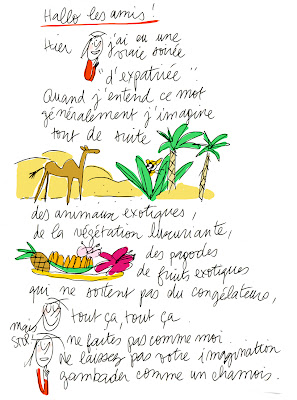 Hallo les amis!
Hier j'ai eu une
vraie soirée
"d'expatriée".
Quand j'entend ce mot
généralement j'imagine
tout de suite
des animaux exotiques,
de la végétation luxuriante,
des pagodes
de fruits exotiques
qui ne sortent pas du congélateurs,
tout ça, tout ça.
mais
STOP
ne faites pas comme moi.
ne laissez pas votre imagination
gambader comme un chamois.